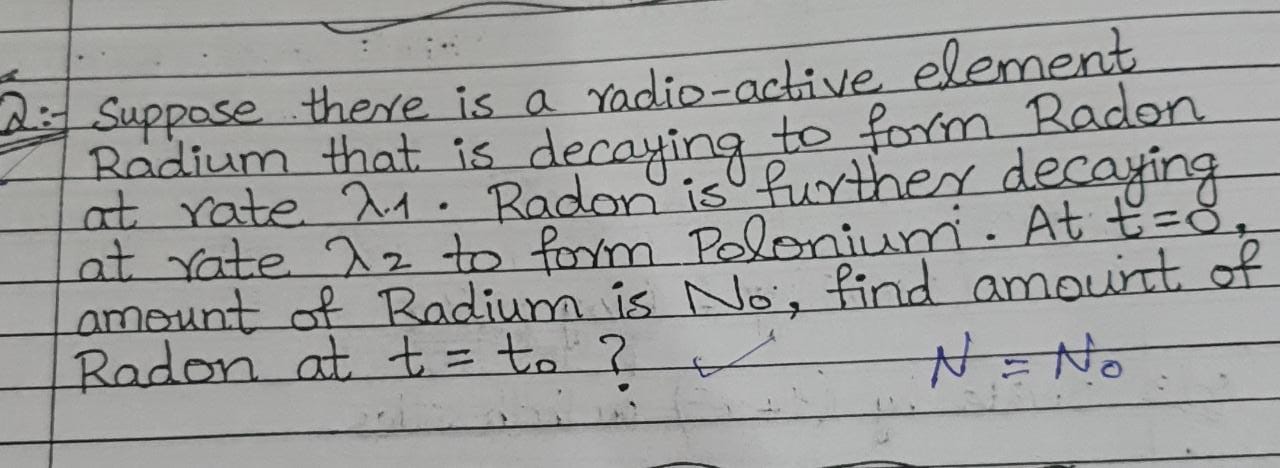 Q:- Suppose there is a radio-active element
Radium that is decaying to form Radon
at rate λ1. Radon is further decaying
at rate λ2 to form Polonium. At t=0,
amount of Radium is No, find amount of
Radon at t = to ?
N = No